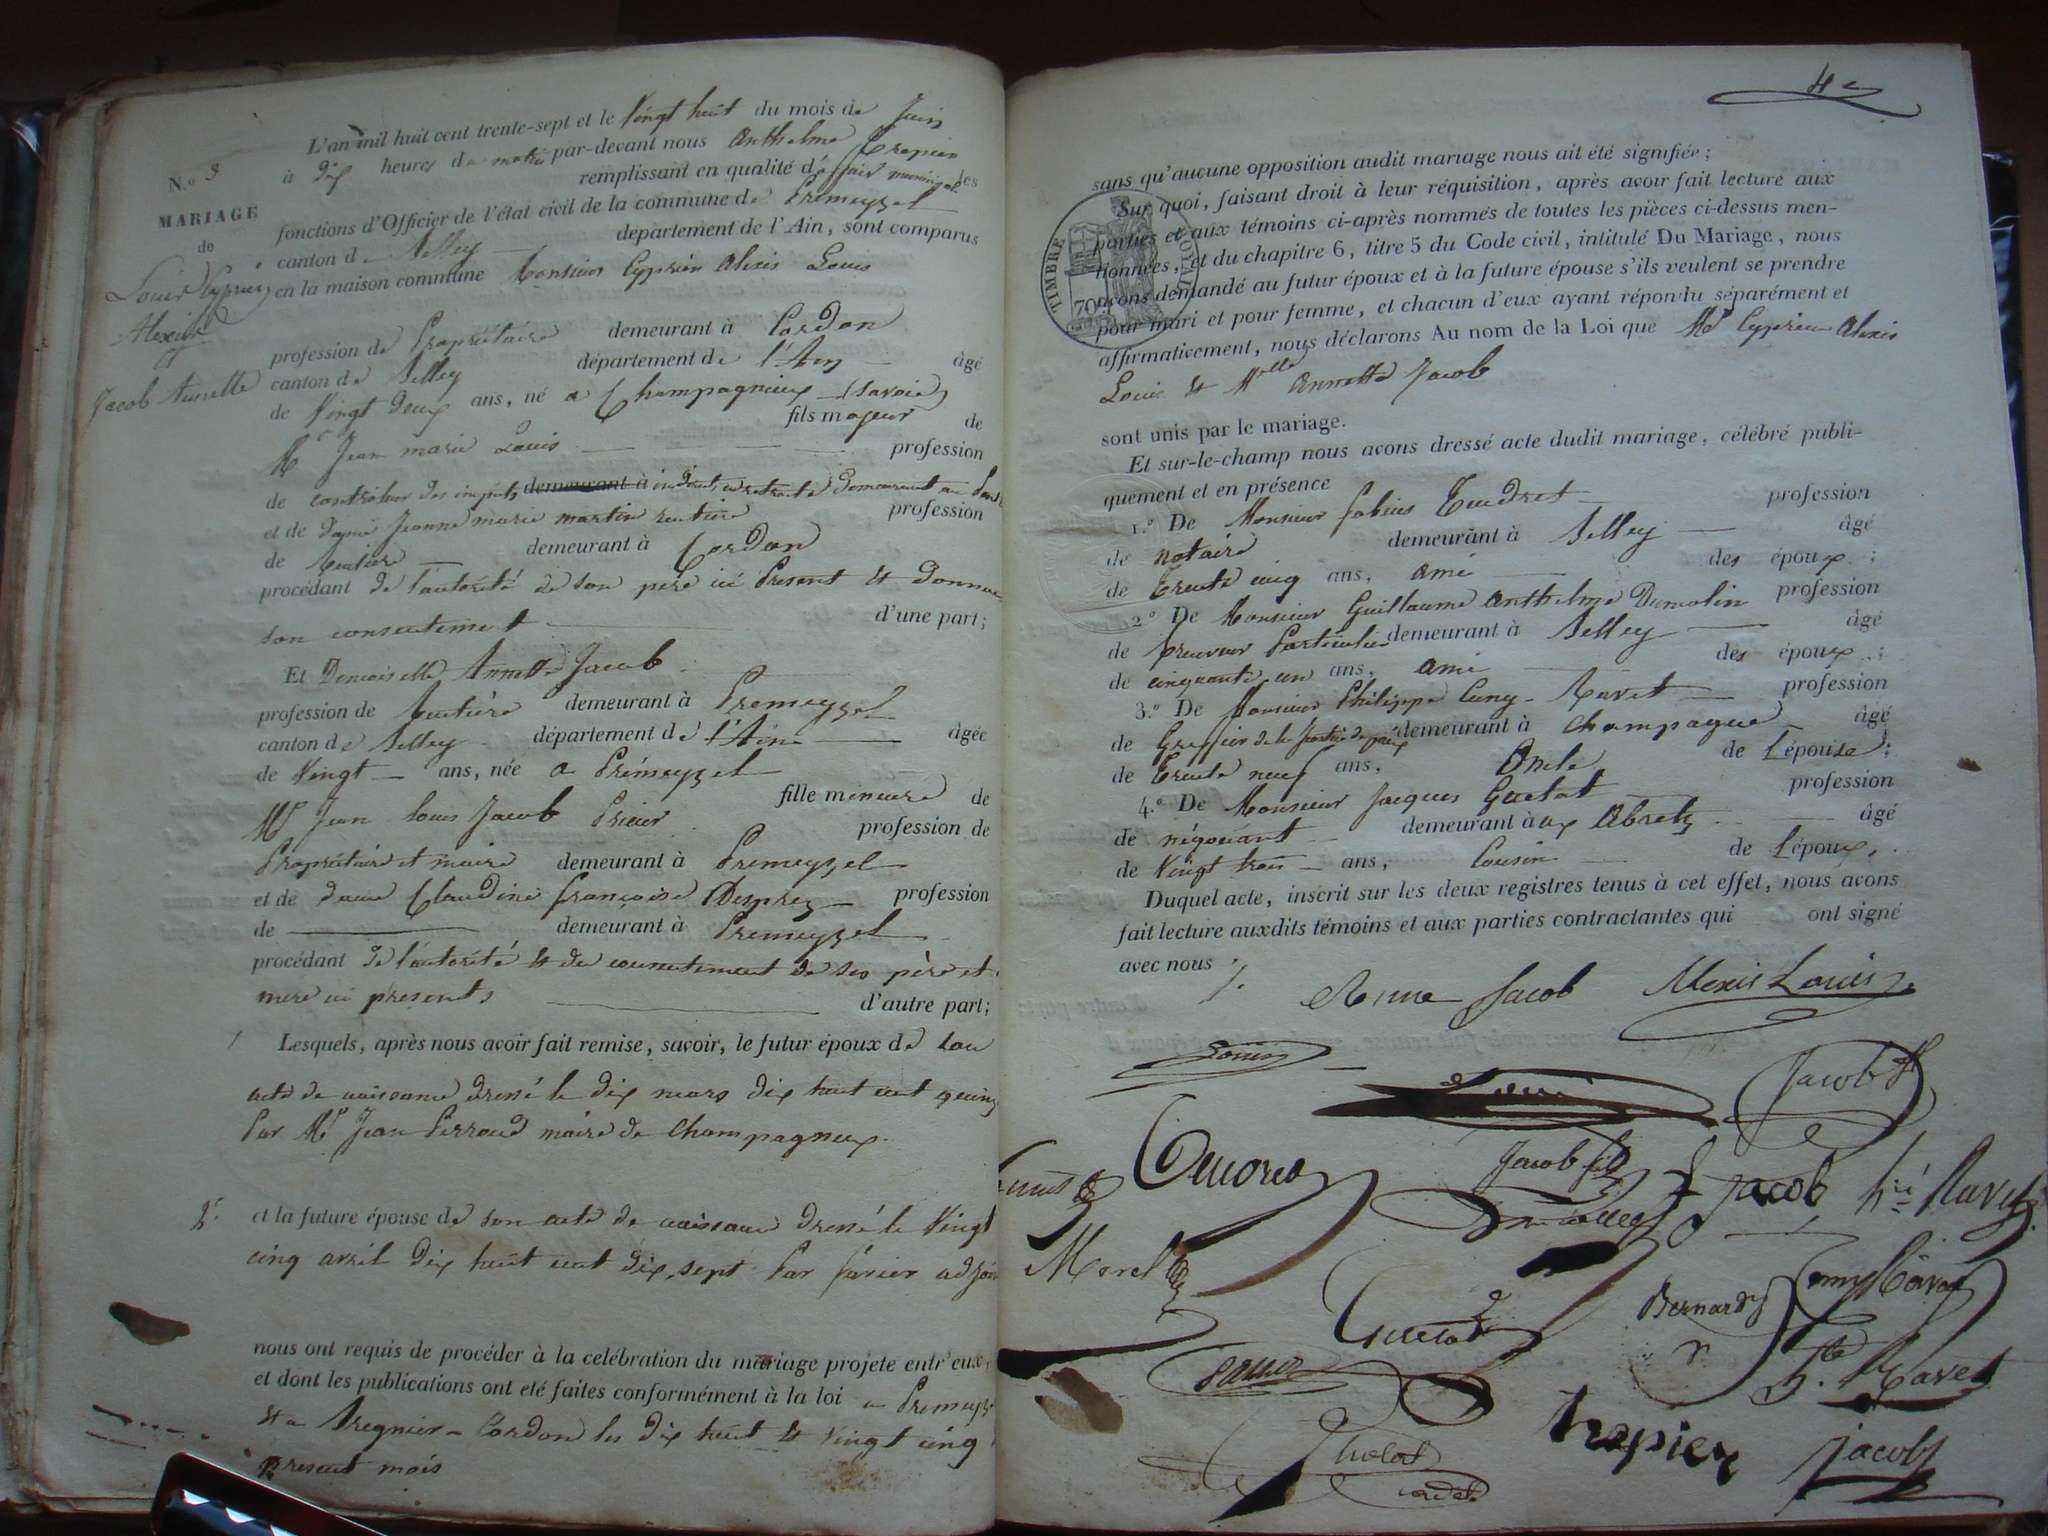 L'an mil huit cent trente-sept et le Vingt huit du mois de Juin
à dix heures du matin par-devant nous Anthelme Trepier
remplissant en qualité d' les
fonctions d'Officier de l'état civil de la commune de Premeyzel
canton de Belley département de l'Ain, sont comparus
en la maison commune Monsieur Cyprien Alexis Louis
N.o 3
MARIAGE
de
Louis Cyprien
Alexis
et
Jacob Annette
profession de Propriétaire demeurant à Cordon
canton de Belley département de l'Ain âgé
de Vingt deux ans, né a Champagneux (Savoie)
fils majeur de
Mr Jean marie Louis profession
de controleur des impots demeurant à indirects en retraite demeurant au
et de dame Jeanne marie martin rentiere profession
de rentiere demeurant à Cordon
procédant de l'autorité de son père ici Present et donnant
son consentement d'une part;
Et Demoiselle Annette Jacob
profession de Rentière demeurant à Premeyzel
canton de Belley département de l'Ain âgée
de Vingt ans, née a Prémeyzel
fille mineure de
Mr Jean Louis Jacob Prieur profession de
Propriétaire et maire demeurant à Premeyzel
et de dame Claudine françoise Desprez profession
de demeurant à Premeyzel
procédant de l'autorité et du consentement de ses père et
mere ici presents d'autre part;
Lesquels, après nous avoir fait remise, savoir, le futur époux de son
acte de naissance dressé le dix mars dix huit cent quinze
Par Mr Jean Perroud maire de Champagneux.
2° et la future épouse de son acte de naissance dressé le Vingt
cinq avril dix huit cent dix sept Par
nous ont requis de procéder à la celébration du mariage projeté entr'eux,
et dont les publications ont eté faites conformément à la loi a Premeyzel
et a Bregnier-Cordon les dix huit et vingt cinq
present mois
sans qu'aucune opposition audit mariage nous ait été signifiée;
Sur quoi, faisant droit à leur réquisition, après avoir fait lecture aux
parties et aux témoins ci-après nommés de toutes les pièces ci-dessus men-
tionnées, et du chapitre 6, titre 5 du Code civil, intitulé Du Mariage, nous
avons demandé au futur époux et à la future épouse s'ils veulent se prendre
pour mari et pour femme, et chacun d'eux ayant répondu séparément et
affirmativement, nous déclarons Au nom de la Loi que Mr Cyprien Alexis
Louis et Melle Annette Jacob
TIMBRE ROYAL
70
sont unis par le mariage.
Et sur-le-champ nous avons dressé acte dudit mariage, célébré publi-
quement et en présence
1.o De Monsieur fabius Tendret profession
de notaire demeurant à Belley âgé
de trente cinq ans, ami des époux;
2o De Monsieur Guillaume Anthelme Dumolin profession
de Particulier demeurant à Belley âgé
de cinquante un ans, ami des époux;
3.o De Monsieur Philippe Cuny-Ravet profession
de Greffier de la justice de paix demeurant à Champagne âgé
de trente neuf ans, Oncle de L'épouse;
4.o De Monsieur Jacques Guetat profession
de négociant demeurant à aux Abrets âgé
de Vingt trois ans, Cousin de L'époux,
Duquel acte, inscrit sur les deux registres tenus à cet effet, nous avons
fait lecture auxdits témoins et aux parties contractantes qui ont signé
avec nous
Anne Jacob Alexis Louis
Louis
Jacob
Jacob fils Jacob Ravet
Morel
Guetat
Bernard
Ravet
trepier
Jacob